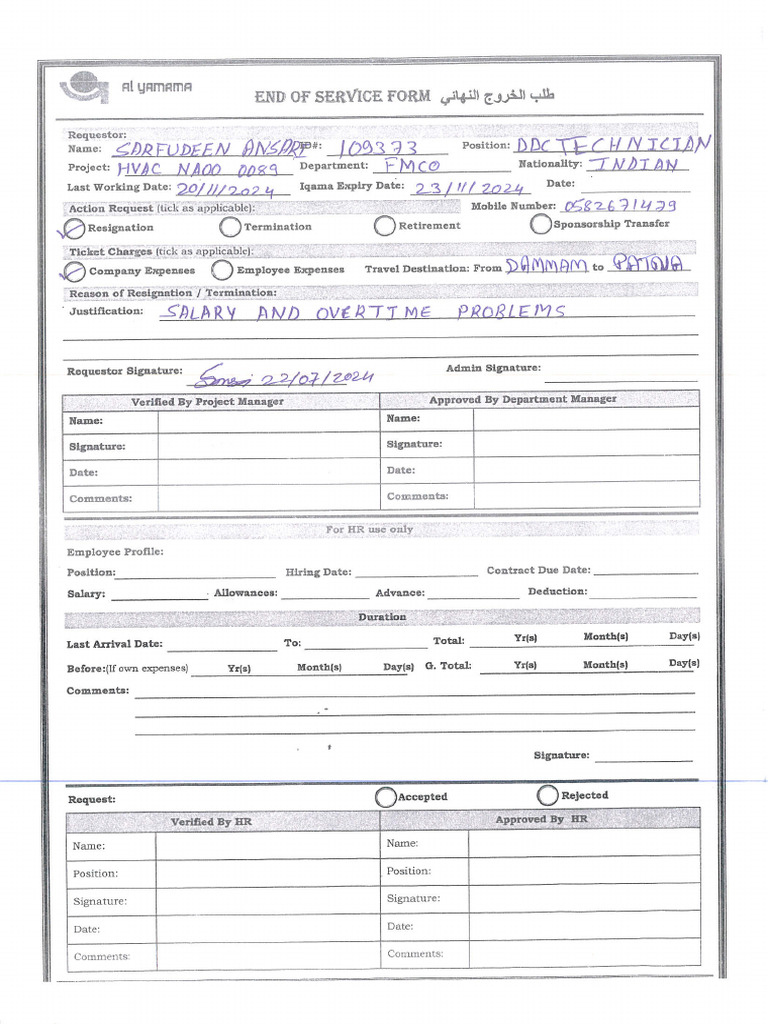 Al YAMAMA
END OF SERVICE FORM طلب الخروج النهائي
Requestor:
Name: SARFUDEEN ANSARI ID#: 109373 Position: DDC TECHNICIAN
Project: HVAC NA00 0089 Department: FMCO Nationality: INDIAN
Last Working Date: 20/11/2024 Iqama Expiry Date: 23/11/2024 Date:
Action Request (tick as applicable): Mobile Number: 0582671479
Resignation Termination Retirement Sponsorship Transfer
Ticket Charges (tick as applicable):
Company Expenses Employee Expenses Travel Destination: From DAMMAM to PATNA
Reason of Resignation / Termination:
Justification: SALARY AND OVERTIME PROBLEMS
Requestor Signature: 22/07/2024 Admin Signature:
Verified By Project Manager Approved By Department Manager
Name: Name:
Signature: Signature:
Date: Date:
Comments: Comments:
For HR use only
Employee Profile:
Position: Hiring Date: Contract Due Date:
Salary: Allowances: Advance: Deduction:
Duration
Last Arrival Date: To: Total: Yr(s) Month(s) Day(s)
Before:(If own expenses) Yr(s) Month(s) Day(s) G. Total: Yr(s) Month(s) Day(s)
Comments:
Signature:
Request: Accepted Rejected
Verified By HR Approved By HR
Name: Name:
Position: Position:
Signature: Signature:
Date: Date:
Comments: Comments: